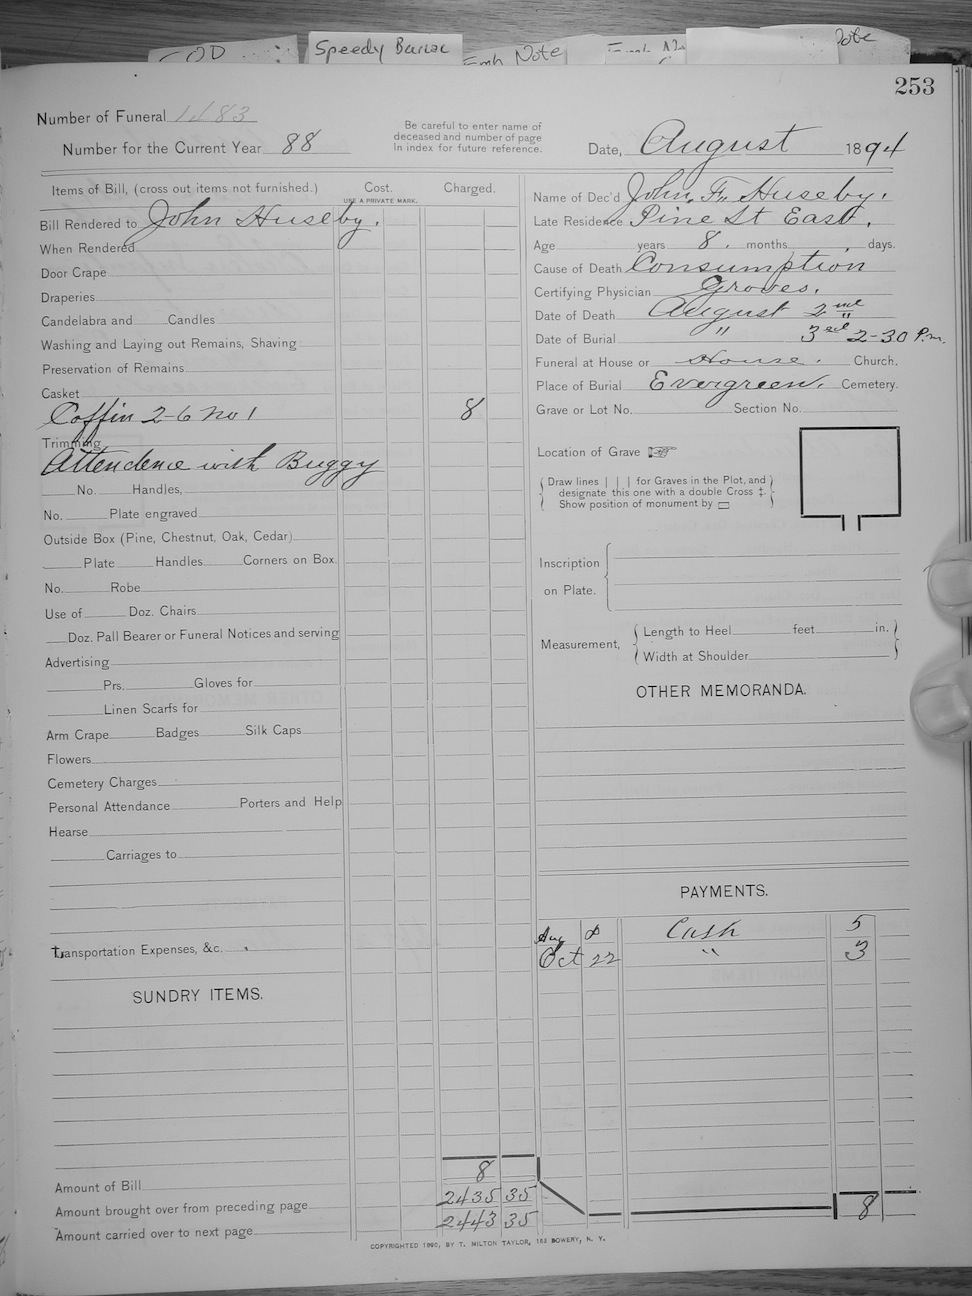 Speedy Burial
Note
253
Number of Funeral
Number for the Current Year 88
Be careful to enter name of
deceased and number of page
In index for future reference.
Date, August 1894
Items of Bill, (cross out items not furnished.) Cost. Charged.
USE A PRIVATE MARK.
Bill Rendered to John Huseby.
When Rendered
Door Crape
Draperies
Candelabra and Candles
Washing and Laying out Remains, Shaving
Preservation of Remains
Casket
Coffin 2-6 No 1 8
Trimming
Attendence with Buggy
No. Handles,
No. Plate engraved
Outside Box (Pine, Chestnut, Oak, Cedar)
Plate Handles Corners on Box.
No. Robe
Use of Doz. Chairs
Doz. Pall Bearer or Funeral Notices and serving
Advertising
Prs. Gloves for
Linen Scarfs for
Arm Crape Badges Silk Caps
Flowers
Cemetery Charges
Personal Attendance Porters and Help
Hearse
Carriages to
Transportation Expenses, &c.
SUNDRY ITEMS.
Amount of Bill 8
Amount brought over from preceding page 2435 35
Amount carried over to next page 2443 35
Name of Dec'd John Huseby.
Late Residence Pine St East.
Age years 8 . months , days.
Cause of Death Consumption
Certifying Physician Groves.
Date of Death August 2nd
Date of Burial " " 3rd 2-30 P.m.
Funeral at House or House. Church.
Place of Burial Evergreen. Cemetery.
Grave or Lot No. Section No.
Location of Grave
Draw lines | | | for Graves in the Plot, and
designate this one with a double Cross ‡.
Show position of monument by ▭
Inscription
on Plate.
Measurement, Length to Heel feet in.
Width at Shoulder
OTHER MEMORANDA.
PAYMENTS.
Aug Cash 5
Oct 22 " 3
8
COPYRIGHTED 1890, BY T. MILTON TAYLOR, 163 BOWERY, N. Y.